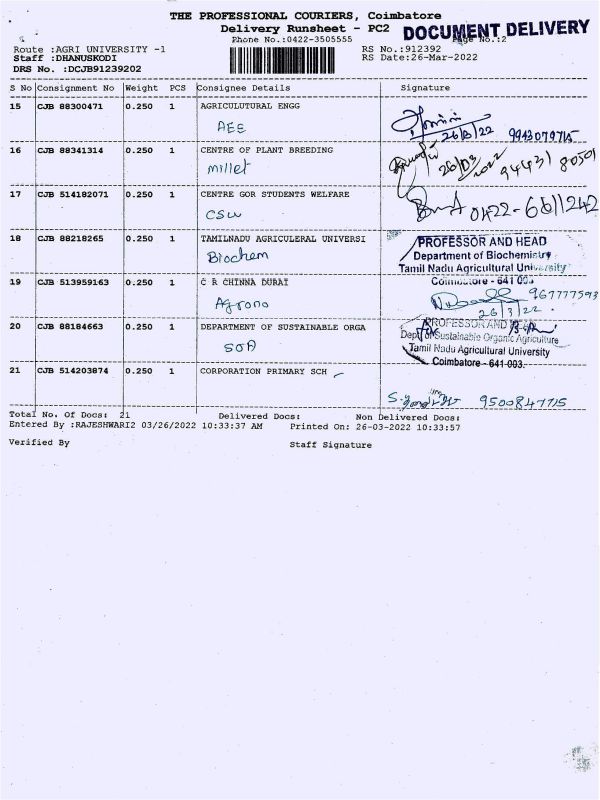 THE PROFESSIONAL COURIERS, Coimbatore
Delivery Runsheet - PC2
DOCUMENT DELIVERY
Phone No.:0422-3505555
Page No.:2
Route :AGRI UNIVERSITY -1
RS No.:912392
Staff :DHANUSKODI
RS Date:26-Mar-2022
DRS No. :DCJB91239202
S No Consignment No Weight PCS Consignee Details Signature
15 CJB 88300471 0.250 1 AGRICULUTURAL ENGG
AEE
26/3/22 9943079715
16 CJB 88341314 0.250 1 CENTRE OF PLANT BREEDING
millet
26/03/2022 94431 80501
17 CJB 514182071 0.250 1 CENTRE GOR STUDENTS WELFARE
CSW
0422-6611242
18 CJB 88218265 0.250 1 TAMILNADU AGRICULERAL UNIVERSI
Biochem
PROFESSOR AND HEAD
Department of Biochemistry
Tamil Nadu Agricultural University
Coimbatore - 641 003
19 CJB 513959163 0.250 1 C R CHINNA DURAT
Agrono
967777593
26/3/22
20 CJB 88184663 0.250 1 DEPARTMENT OF SUSTAINABLE ORGA
SOA
PROFESSOR AND
Dept of Sustainable Organic Agriculture
Tamil Nadu Agricultural University
Coimbatore - 641 003.
21 CJB 514203874 0.250 1 CORPORATION PRIMARY SCH
9500847715
Total No. Of Docs: 21 Delivered Docs: Non Delivered Docs:
Entered By :RAJESHWARI2 03/26/2022 10:33:37 AM Printed On: 26-03-2022 10:33:57
Verified By Staff Signature